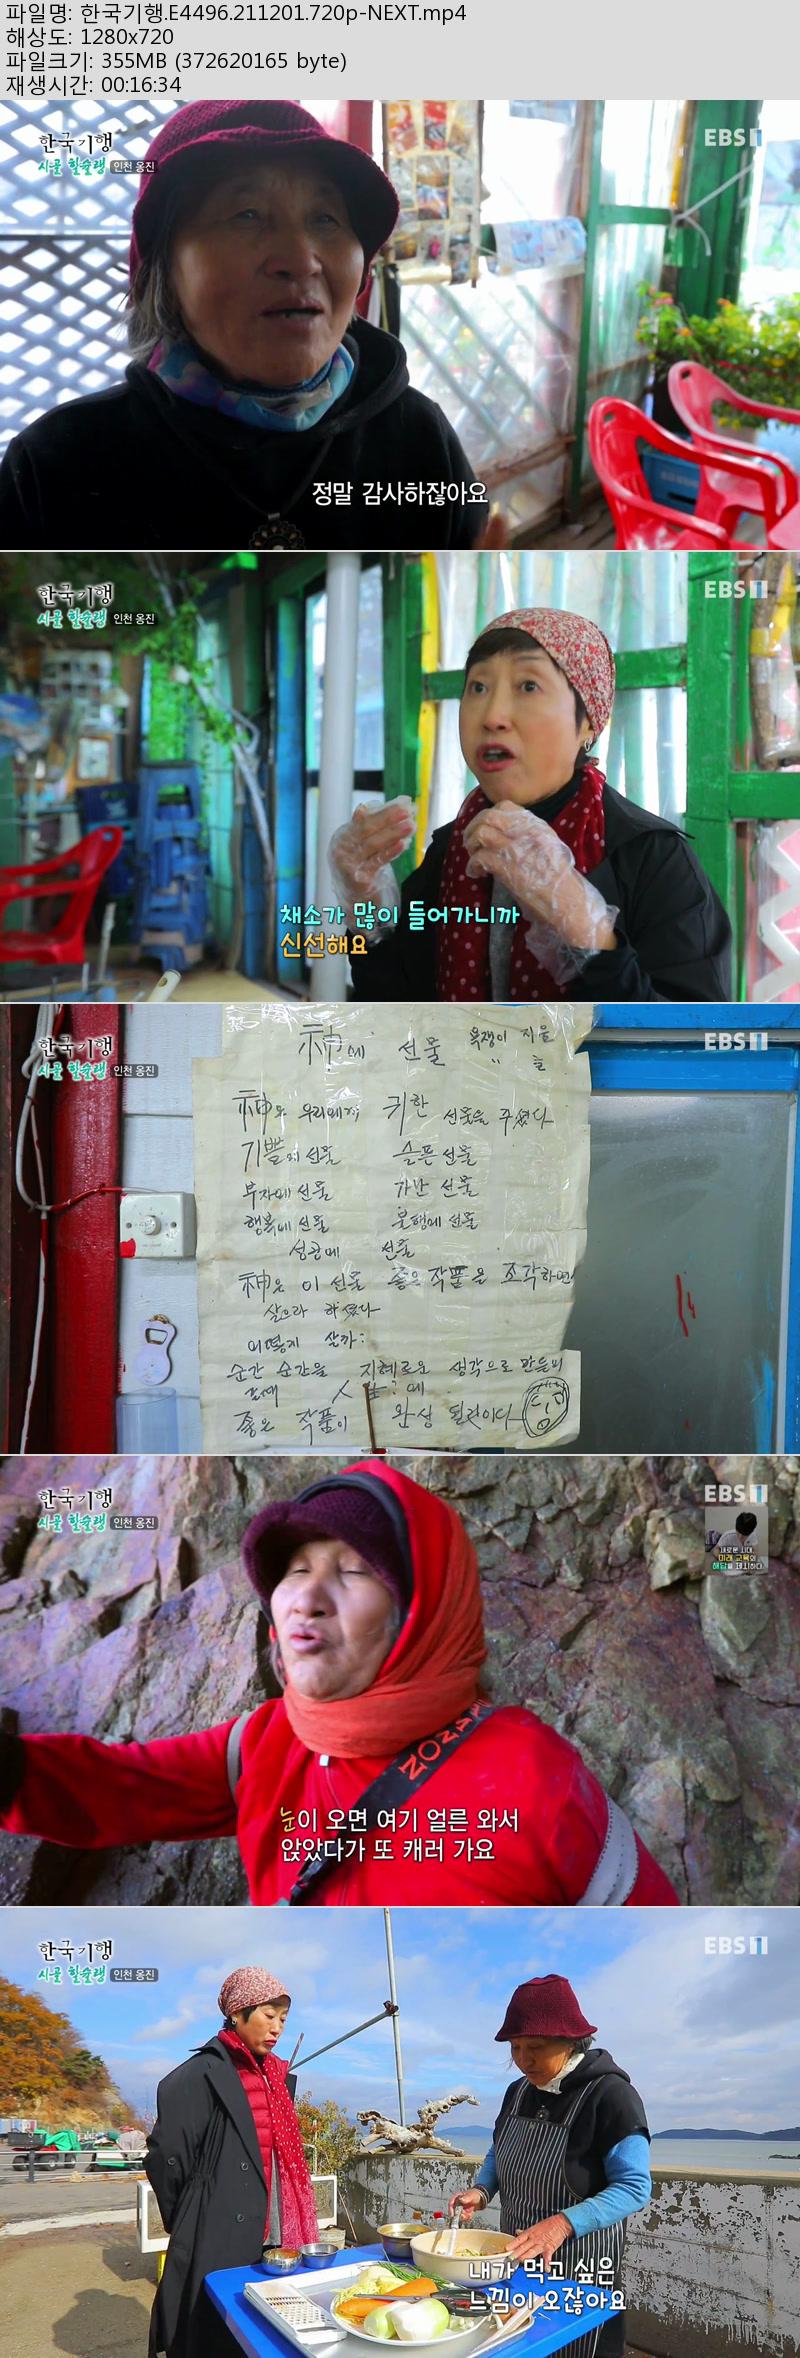 파일명: 한국기행.E4496.211201.720p-NEXT.mp4
해상도: 1280x720
파일크기: 355MB (372620165 byte)
재생시간: 00:16:34
한국기행
EBS1
시골 힐슐랭 인천 옹진
정말 감사하잖아요
한국기행
EBS1
시골 힐슐랭 인천 옹진
채소가 많이 들어가니까
신선해요
한국기행
EBS1
시골 힐슐랭 인천 옹진
神에 선물
神은 우리에게 귀한 선물을 주셨다
기쁨에 선물 슬픈 선물
부자에 선물 가난 선물
행복에 선물 불행에 선물
성공에 선물
神은 이 선물 좋은 작품을 조각하면
살으라 하셨다
어떻게 살까?
순간 순간을 지혜로운 생각으로 만들며
좋은 작품이 완성 될것이다
한국기행
EBS1
시골 힐슐랭 인천 옹진
새로운 시대,
미래 교육의
해답을 제시하다
눈이 오면 여기 얼른 와서
앉았다가 또 캐러 가요
한국기행
EBS1
시골 힐슐랭 인천 옹진
내가 먹고 싶은
느낌이 오잖아요